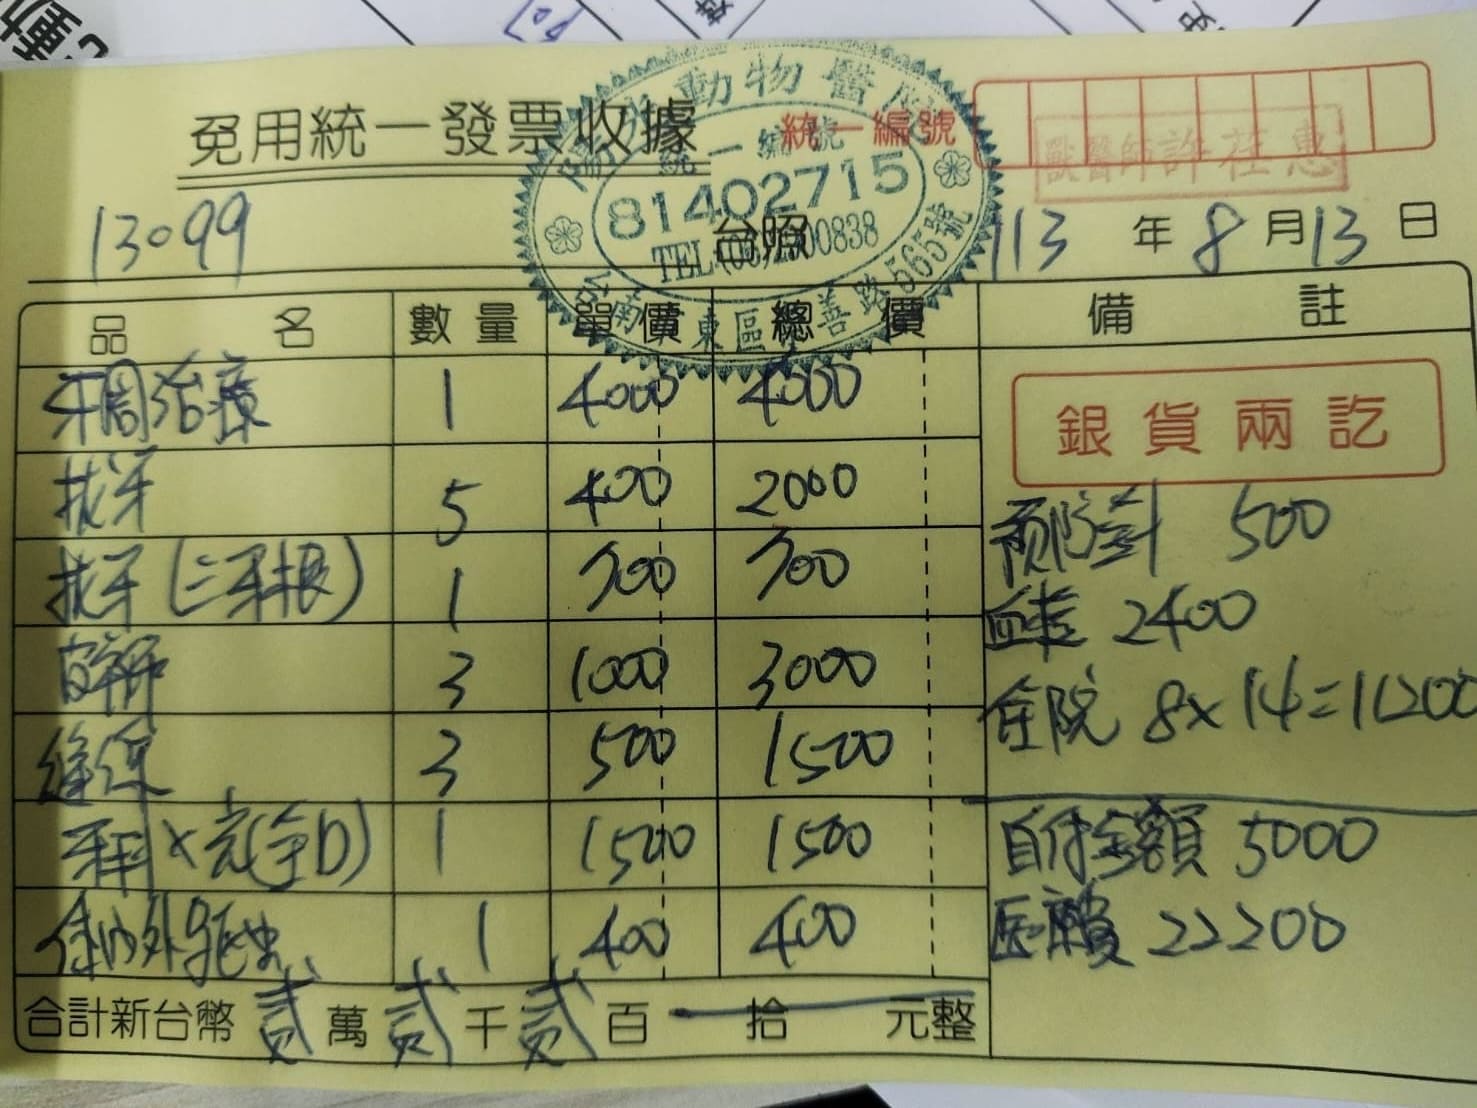 免用統一發票收據
統一編號
動物醫院
統一編號
81402715
台南 東區 善路565號
獸醫師許荏惠
13099
台照
113 年 8 月 13 日
品名 數量 單價 總價 備註
牙周治療 1 4000 4000
拔牙 5 400 2000
拔牙(三牙根) 1 700 700
3 1000 3000
縫線 3 500 1500
1 1500 1500
体內外驅虫 1 400 400
銀貨兩訖
預防針 500
血檢 2400
住院 8x14=11200
自付金額 5000
医療費 22200
合計新台幣 貳 萬 貳 千 貳 百 拾 元整